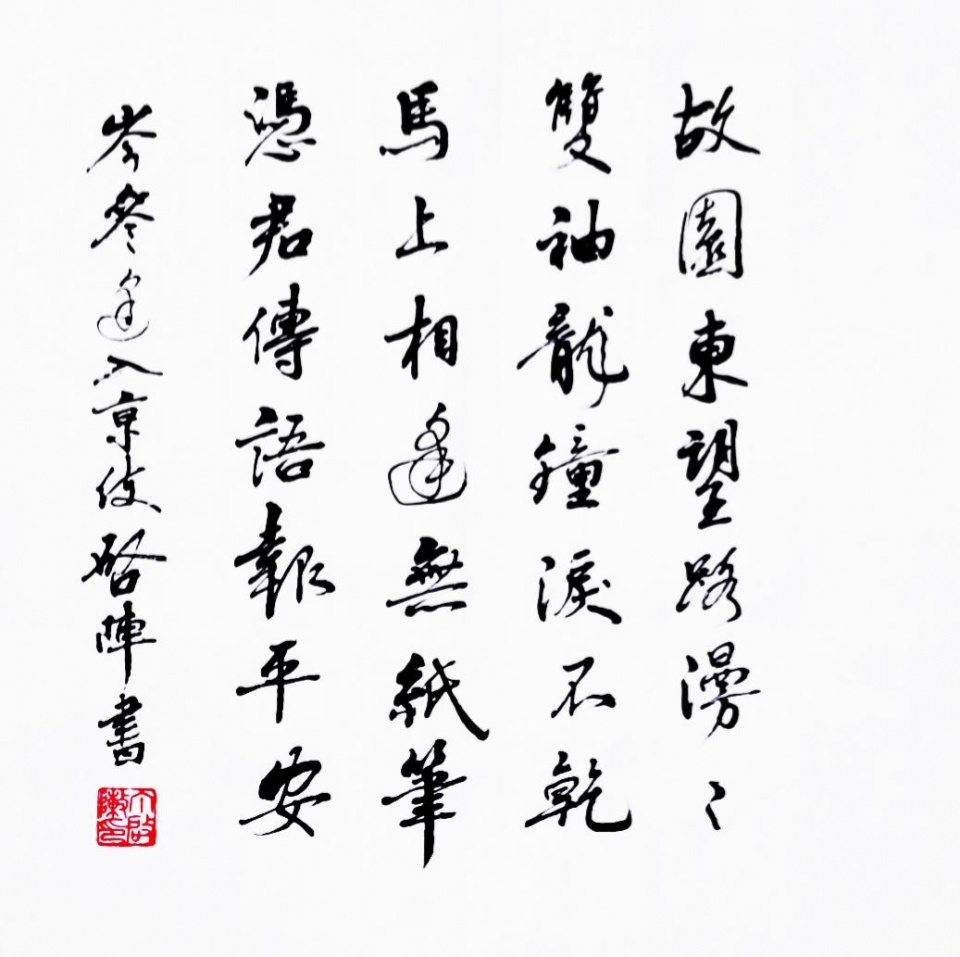 故園東望路漫〻
雙袖龍鐘淚不乾
馬上相逢無紙筆
憑君傳語報平安
岑參逢入京使啓陣書